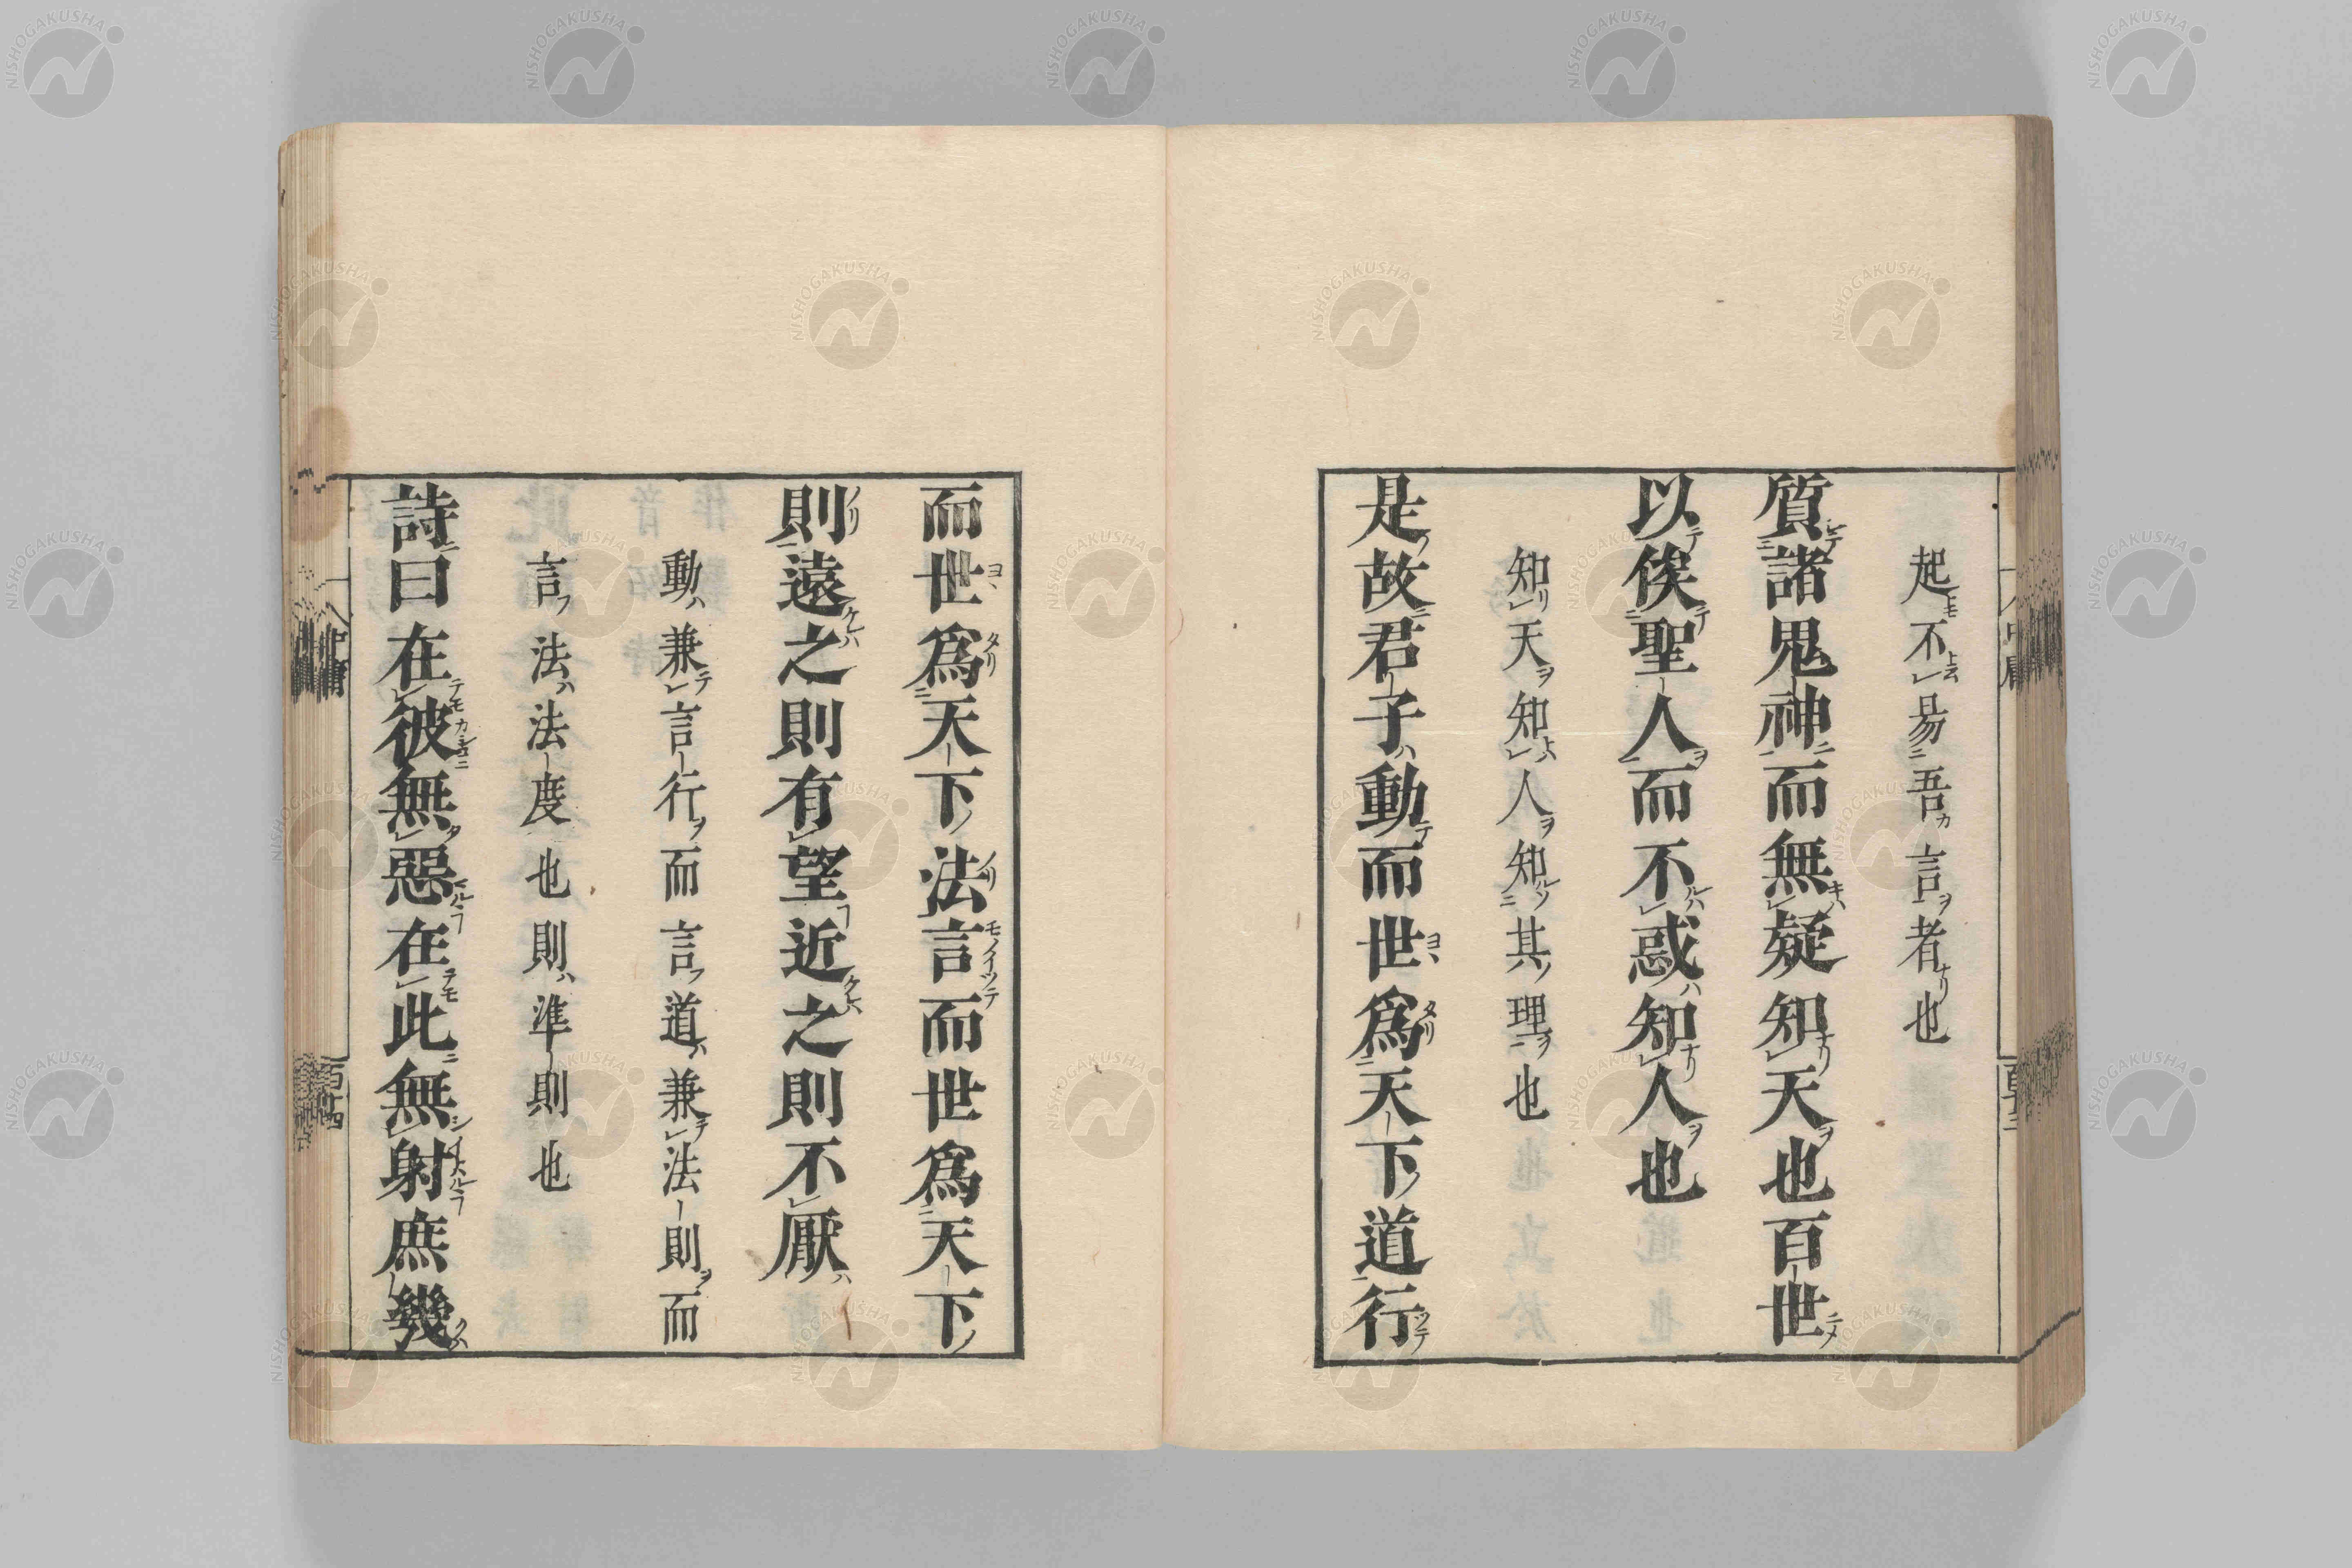 起不易吾言者也
質諸鬼神而無疑知天也百世
以俟聖人而不惑知人也
知天知人知其理也
是故君子動而世爲天下道行
而世爲天下法言而世爲天下
則遠之則有望近之則不厭
動兼言行而言道兼法則而
言法法度也則準則也
詩曰在彼無惡在此無射庶幾
中庸
NISHOGAKUSHA